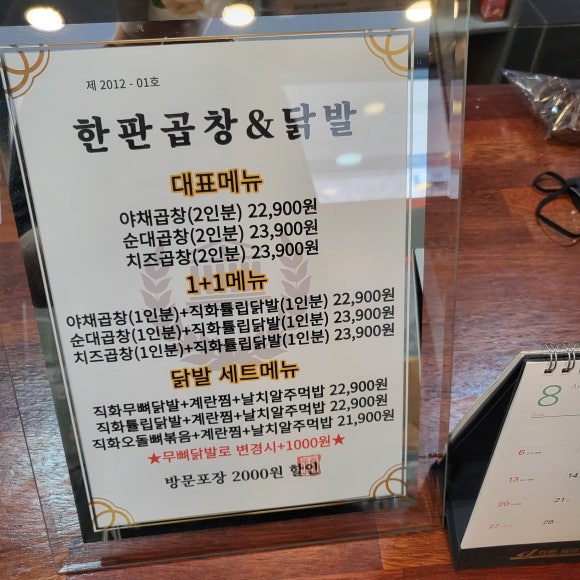 제 2012 - 01호
한판곱창&닭발
대표메뉴
야채곱창(2인분) 22,900원
순대곱창(2인분) 23,900원
치즈곱창(2인분) 23,900원
1+1메뉴
야채곱창(1인분)+직화튤립닭발(1인분) 22,900원
순대곱창(1인분)+직화튤립닭발(1인분) 23,900원
치즈곱창(1인분)+직화튤립닭발(1인분) 23,900원
닭발 세트메뉴
직화무뼈닭발+계란찜+날치알주먹밥 22,900원
직화튤립닭발+계란찜+날치알주먹밥 22,900원
직화오돌뼈볶음+계란찜+날치알주먹밥 21,900원
★무뼈닭발로 변경시+1000원★
방문포장 2000원 할인
8
6
7
13
14
20
21
27
28